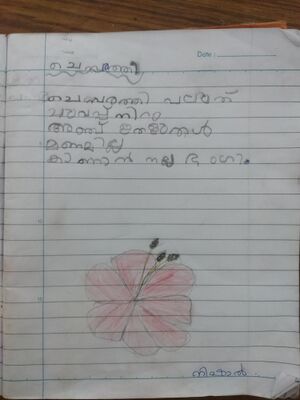 Date :
ചെമ്പരത്തി
ചെമ്പരത്തി
ചുവപ്പ് നിറം
അഞ്ച് ഇതളുകൾ
മണമില്ല
കാണാൻ നല്ല ഭംഗി.